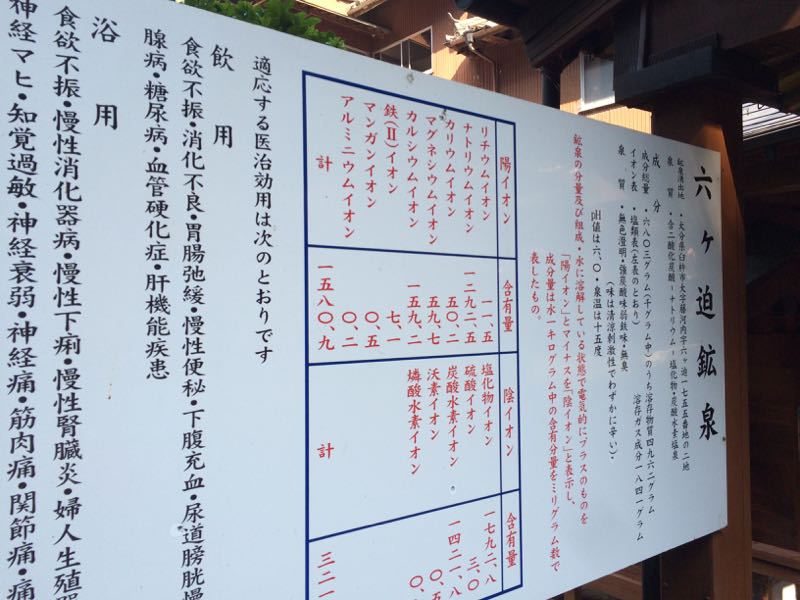 六ヶ迫鉱泉
鉱泉湧出地・大分県臼杵市大字藤河内字六ヶ迫一七五五番地の二地
泉質・含二酸化炭酸ーナトリウムー塩化物・炭酸水素塩泉
成分
成分総量・六八〇三グラム(千グラム中)のうち溶存物質四九六二グラム
溶存ガス成分一八四一グラム
イオン表・塩類表(左表のとおり)
泉質・無色澄明・強炭酸味弱鉄味・無臭
(味は清涼刺激性でわずかに辛い)
pH値は六、〇・泉温は十五度
鉱泉の分量及び組成・水に溶解している状態で電気的にプラスのものを
「陽イオン」とマイナスを「陰イオン」と表示し、
成分量は水一キログラム中の含有分量をミリグラム数で
表したもの。
陽イオン 含有量 陰イオン 含有量
リチウムイオン 一一、五 塩化物イオン 一七九二、八
ナトリウムイオン 一二九二、五 硫酸イオン 三、〇
カリウムイオン 五〇、二 炭酸水素イオン 一四二一、八
マグネシウムイオン 五九、七 沃素イオン 〇、五
カルシウムイオン 一五九、二 燐酸水素イオン 〇、
鉄(Ⅱ)イオン 七、一
マンガンイオン 〇、五
アルミニウムイオン 〇、二
計 一五八〇、九 計 三二一
適応する医治効用は次のとおりです
飲用
食欲不振・消化不良・胃腸弛緩・慢性便秘・下腹充血・尿道膀胱慢
腺病・糖尿病・血管硬化症・肝機能疾患
浴用
食欲不振・慢性消化器病・慢性下痢・慢性腎臓炎・婦人生殖器
神経マヒ・知覚過敏・神経衰弱・神経痛・筋肉痛・関節痛・痛